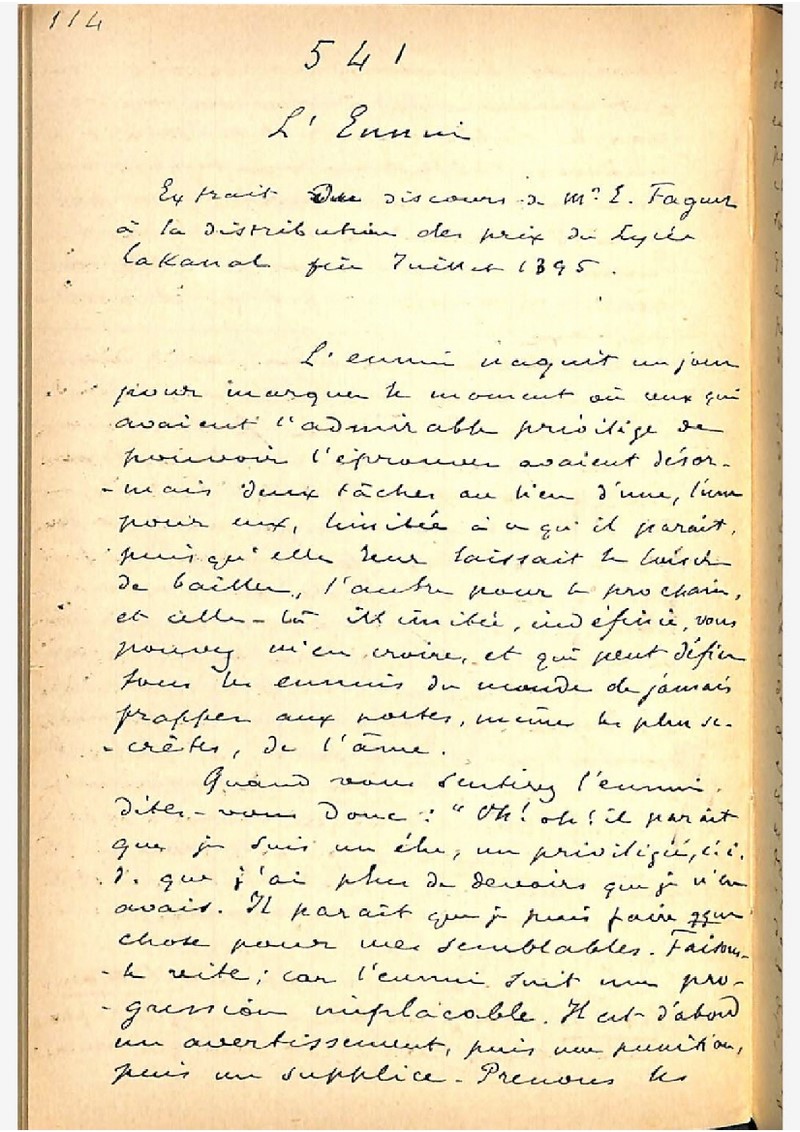 114
541
L' Ennui
Extrait du discours de Mr E. Faguet
à la distribution des prix du Lycée
Lakanal fin Juillet 1895.
L'ennui naquit un jour
pour marquer le moment où ceux qui
avaient l'admirable privilège de
pouvoir l'éprouver avaient désor-
-mais deux tâches au lieu d'une, l'une
pour eux, limitée à ce qu'il paraît,
puisqu'elle leur laissait le loisir
de bailler, l'autre pour le prochain,
et celle-là illimitée, indéfinie, vous
pouvez m'en croire, et qui peut défier
tous les ennuis du monde de jamais
frapper aux portes, même les plus se-
-crètes, de l'âme.
Quand vous sentirez l'ennui,
dites-vous donc : "Oh! oh! il paraît
que je suis un élu, un privilégié, c.à.
d. que j'ai plus de devoirs que je n'en
avais. Il paraît que je puis faire qque
chose pour mes semblables. Faisons-
-le vite; car l'ennui suit une pro-
-gression implacable. Il est d'abord
un avertissement, puis une punition,
puis un supplice - Prenons les